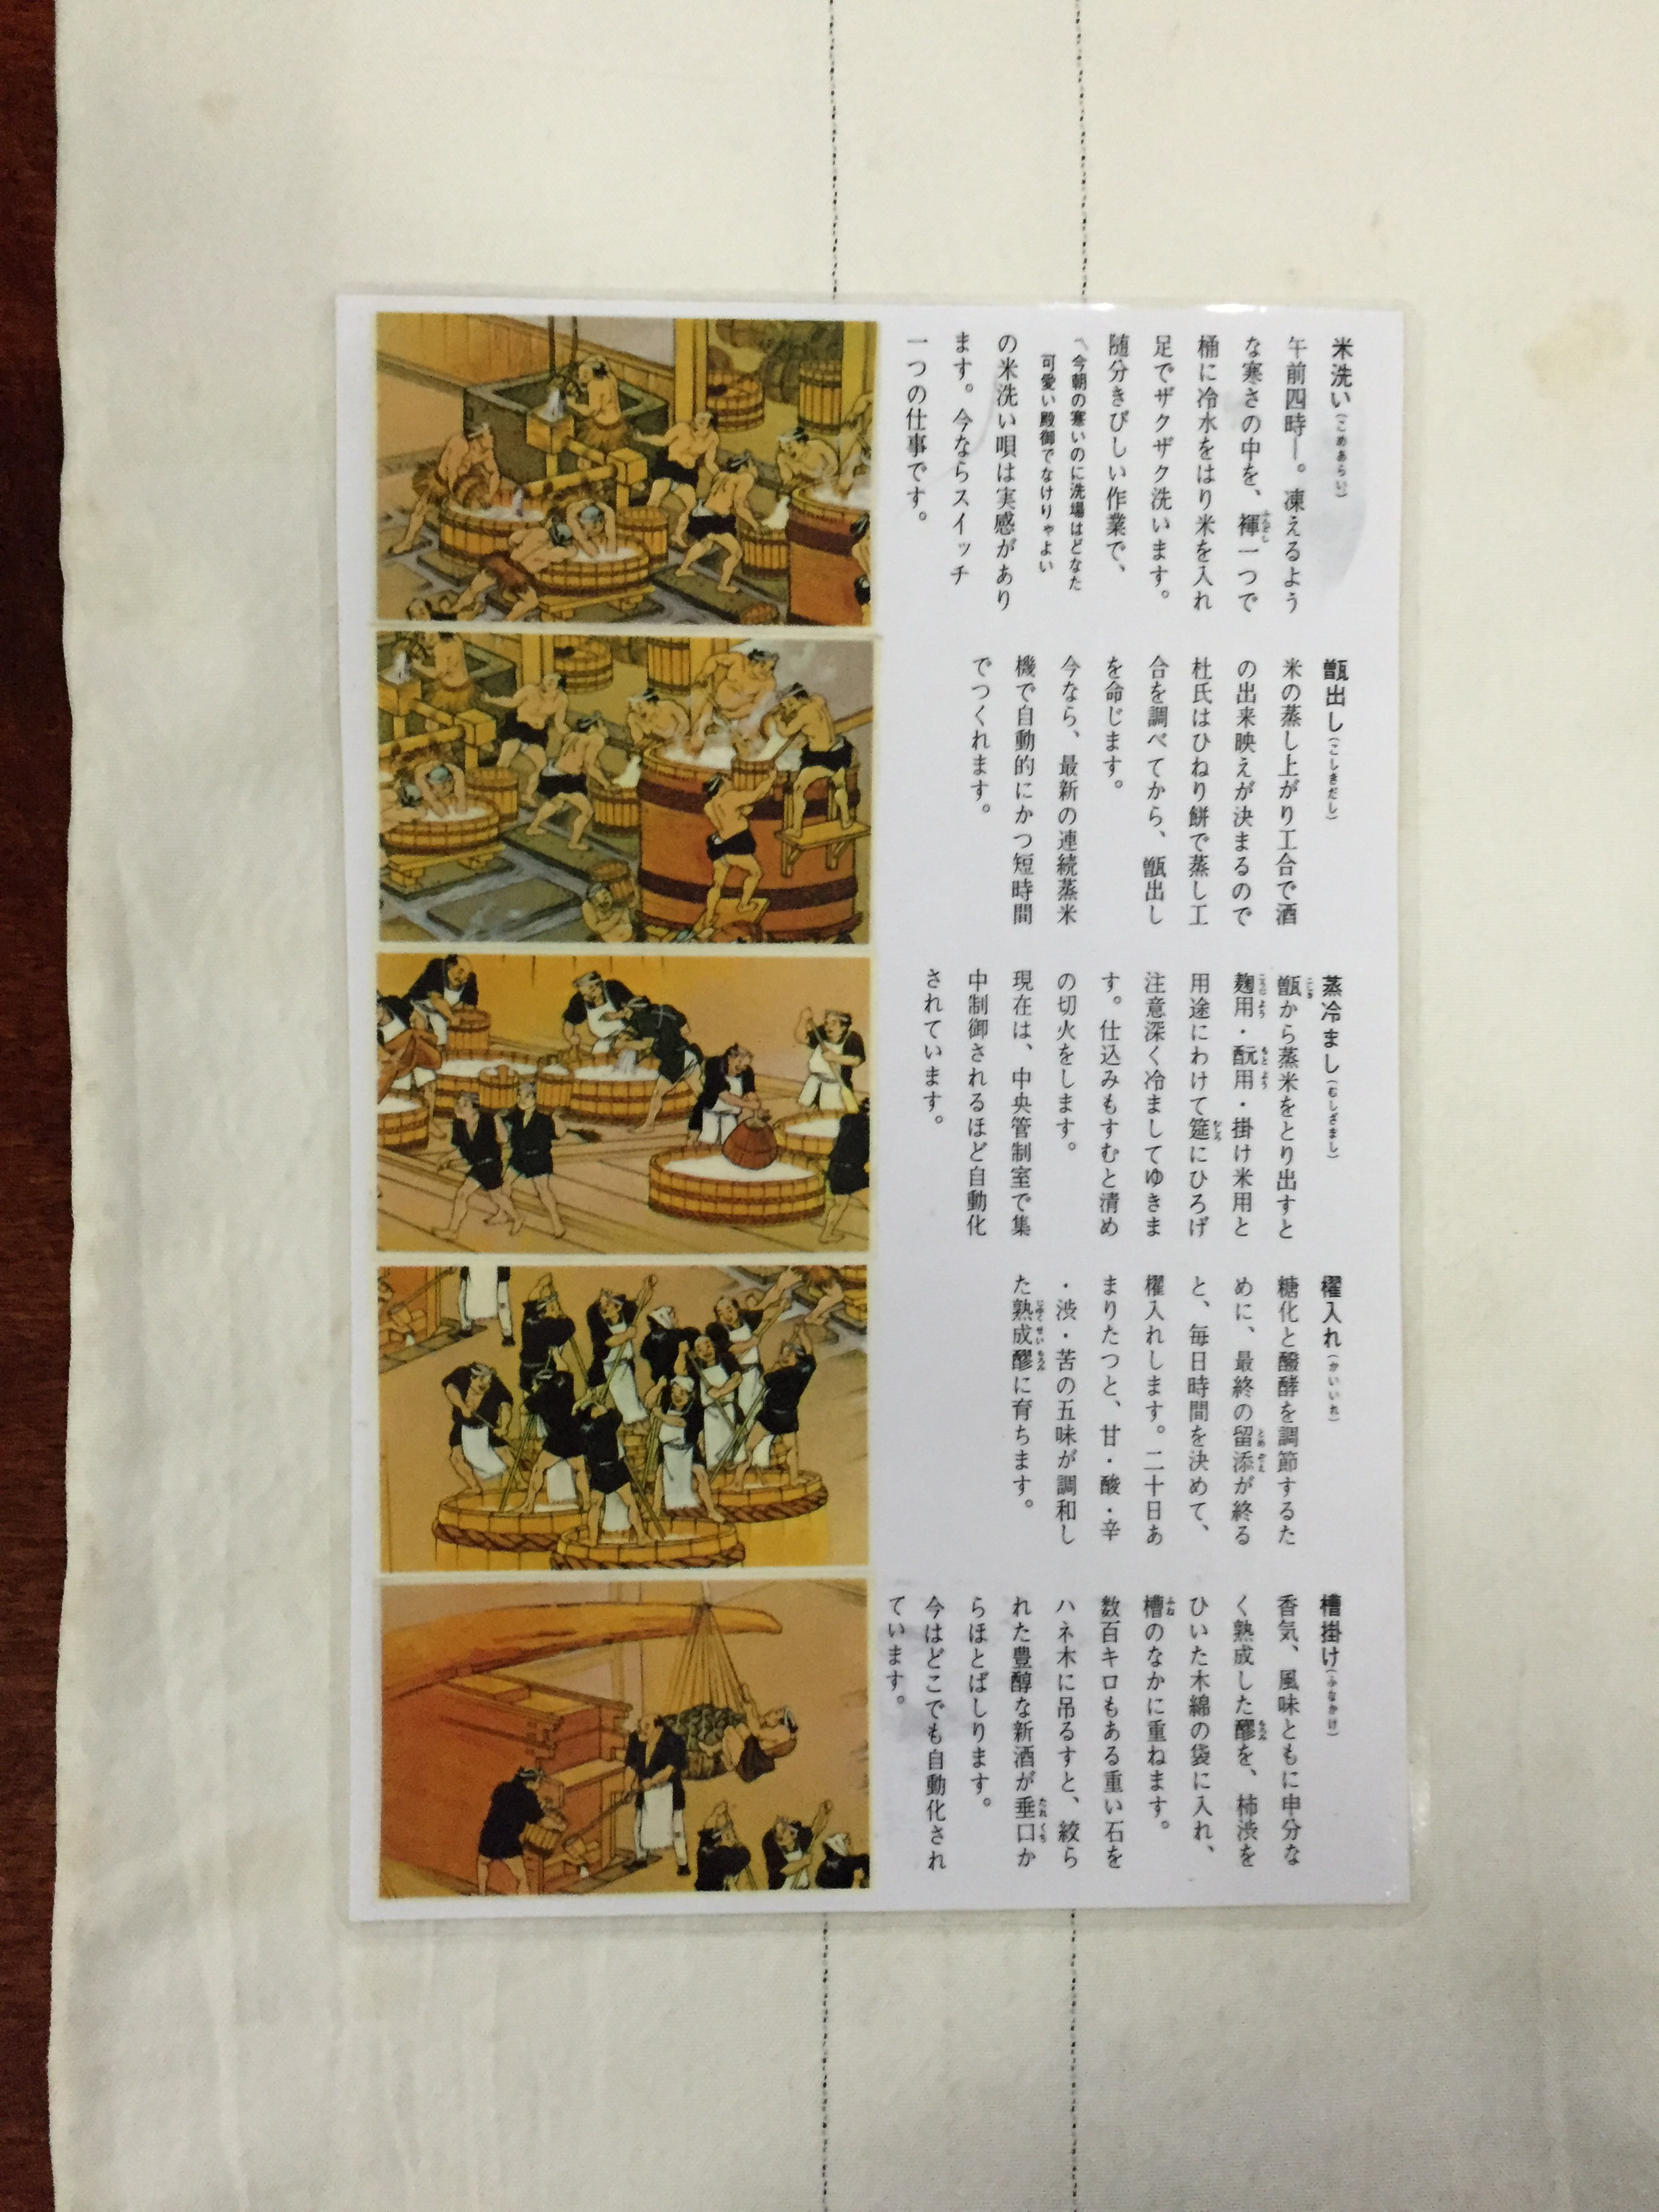 米洗い(こめあらい)
午前四時―。凍えるよう
な寒さの中を、褌一つで
桶に冷水をはり米を入れ
足でザクザク洗います。
随分きびしい作業で、
〽今朝の寒いのに洗場はどなた
可愛い殿御でなけりゃよい
の米洗い唄は実感があり
ます。今ならスイッチ
一つの仕事です。
甑出し(こしきだし)
米の蒸し上がり工合で酒
の出来映えが決まるので
杜氏はひねり餅で蒸し工
合を調べてから、甑出し
を命じます。
今なら、最新の連続蒸米
機で自動的にかつ短時間
でつくれます。
蒸冷まし(むしざまし)
甑から蒸米をとり出すと
麹用・酛用・掛け米用と
用途にわけて筵にひろげ
注意深く冷ましてゆきま
す。仕込みもすむと清め
の切火をします。
現在は、中央管制室で集
中制御されるほど自動化
されています。
櫂入れ(かいいれ)
糖化と醱酵を調節するた
めに、最終の留添が終る
と、毎日時間を決めて、
櫂入れします。二十日あ
まりたつと、甘・酸・辛
・渋・苦の五味が調和し
た熟成醪に育ちます。
槽掛け(ふなかけ)
香気、風味ともに申分な
く熟成した醪を、柿渋を
ひいた木綿の袋に入れ、
槽のなかに重ねます。
数百キロもある重い石を
ハネ木に吊るすと、絞ら
れた豊醇な新酒が垂口か
らほとばしります。
今はどこでも自動化され
ています。